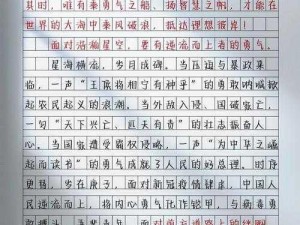 其时，唯有乘勇气之船、扬智慧之帆，才能在
世界的大海中乘风破浪，抵达理想彼岸！
面对浩瀚星空，要有逆流而上者的勇气。
星海横流，岁月成碑。当压迫与暴政来
临，一声“王侯将相宁有种乎”的勇敢呐喊掀
起农民起义的浪潮。当外敌入侵、国破家亡，
一句“天下兴亡、匹夫有勇”的壮志振奋人
心。当国家遭受霸权侵略，一声“为中华之崛
起而读书”的勇气成就了人民的好总理。时序
更替，岁在庚子，面对新冠疫情肆虐，中国人
民逆流而上，将内心勇气化作铠甲，与病毒勇